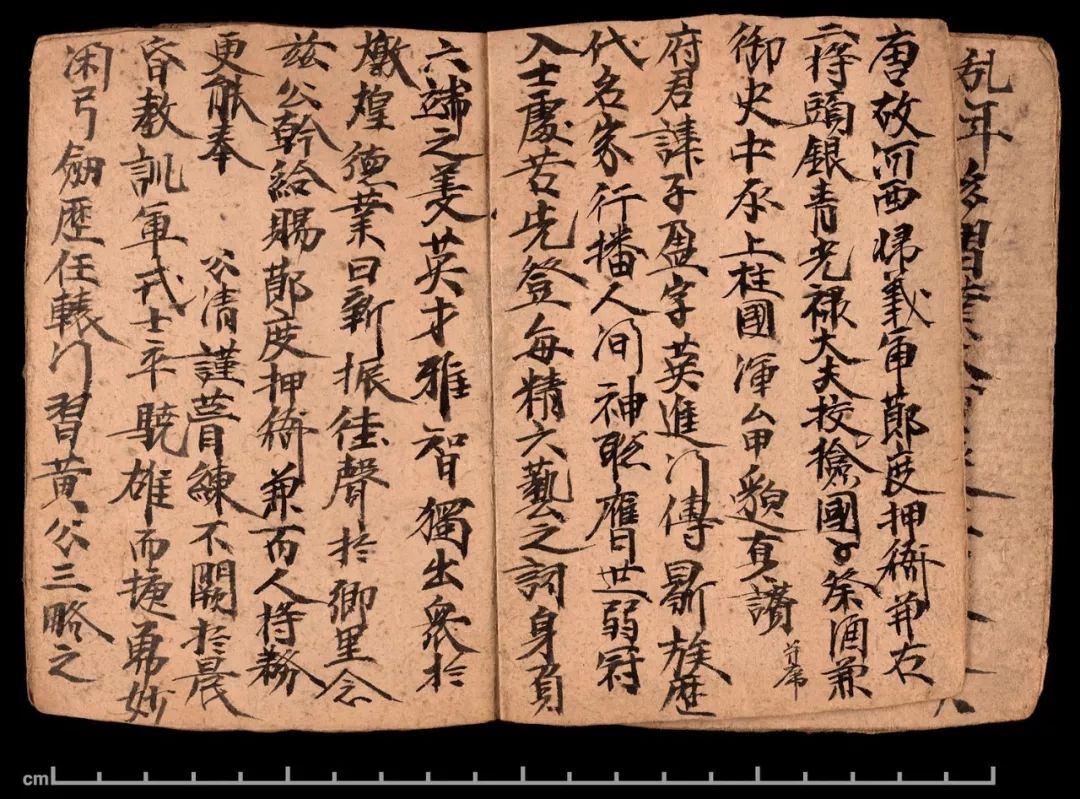 乱年
唐故河西歸義軍莭度押衙兼右
二將頭銀青光禄大夫校撿國子祭酒兼
御史中丞上柱國渾厶甲邈真讃并序
府君諱子盈字英進門傳鼎族歷
代名家行播人間神聡膺世弱冠
入士處苦先登每精六藝之詞身負
六端之美英才雅智獨出衆於
燉煌德業日新振佳聲於鄉里念
兹公幹給賜莭度押衙兼百人將務
更能奉 公清謹葺練不闕於晨
昏教訓軍戎士卒驍雄而捷勇妙
閑弓劒歷任轅門習黃公三略之